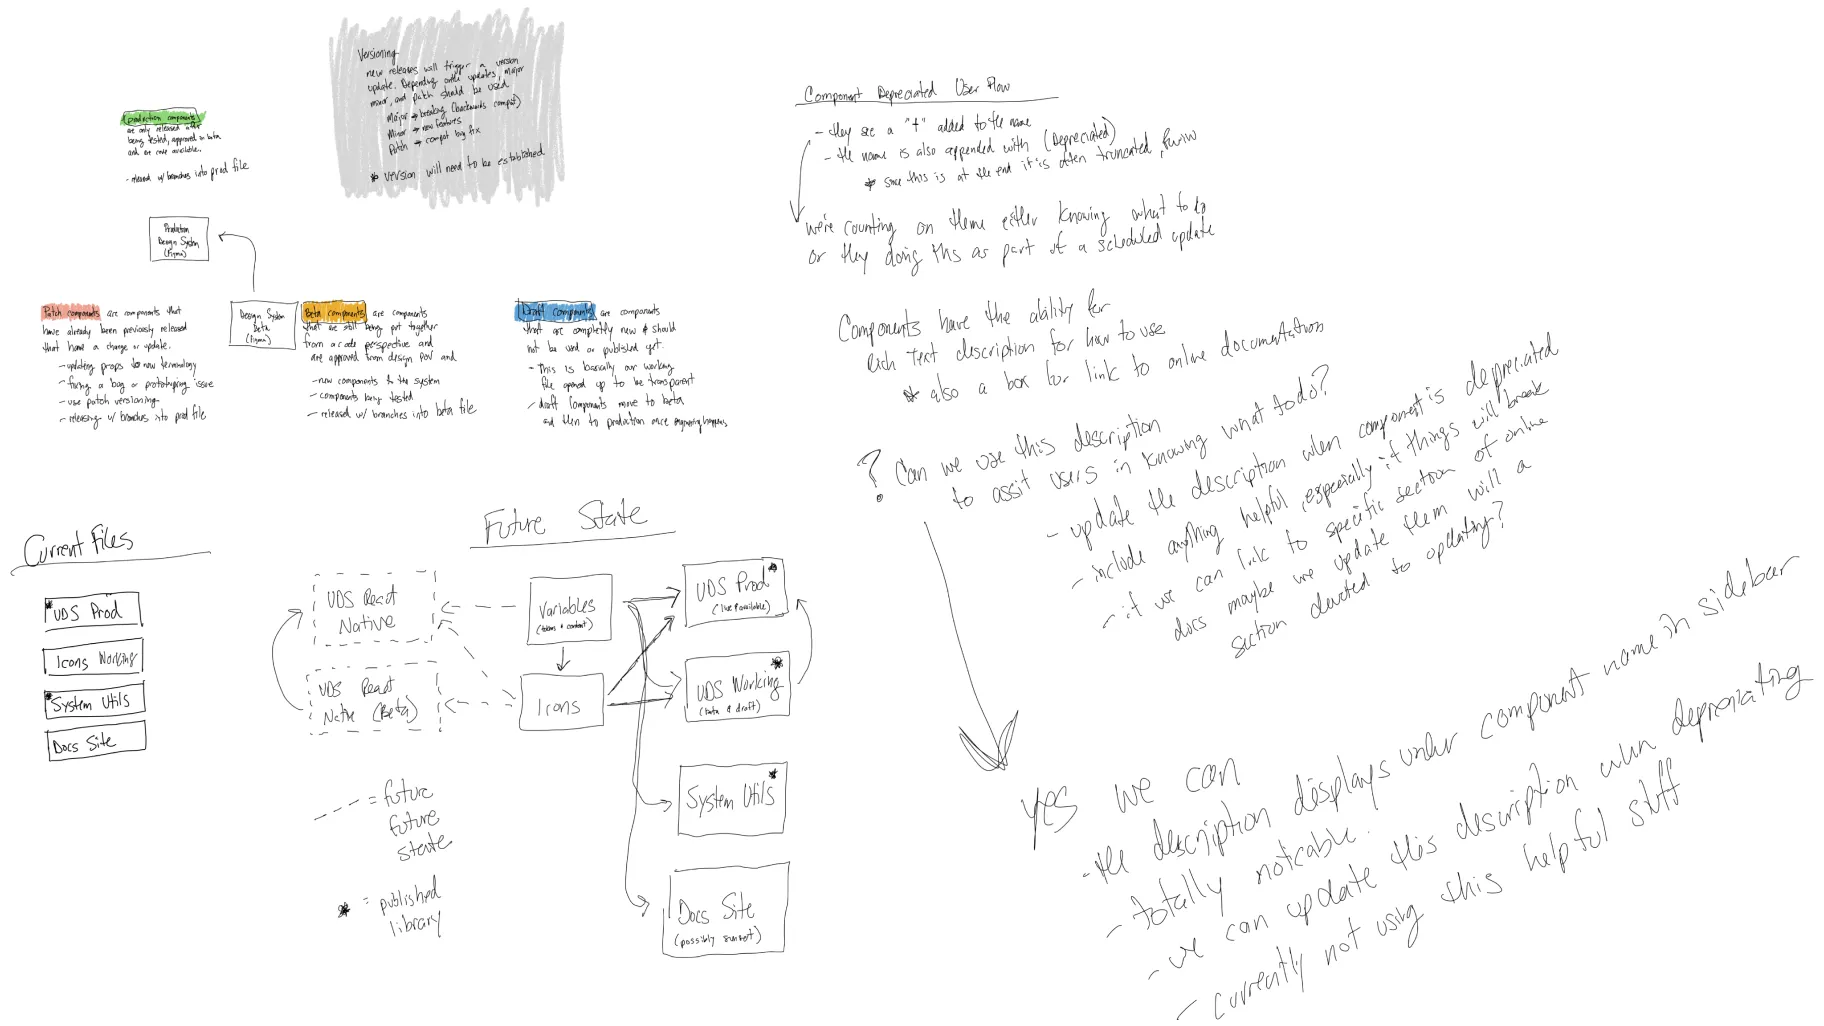 Versioning
new releases will trigger a version
update. Depending on the updates, major
minor, and patch should be used
Major → breaking (backwards compat)
Minor → new features
Patch → compat bug fix
* version will need to be established
production components
are only released after
being tested, approved in beta
and are code available.
- released w/ branches into prod file
Production
Design System
(Figma)
Design System
Beta
(Figma)
Patch components are components that
have already been previously released
that have a change or update.
- updating props to new terminology
- fixing a bug or prototyping issue
- use patch versioning
- releasing w/ branches into prod file
Beta components are components
that are still being put together
from a code perspective and
are approved from design POV and
- new components to the system
- components being tested
- released w/ branches into beta file
Draft components are components
that are completely new & should
not be used or published yet.
- This is basically our working
file opened up to be transparent
- draft components move to beta
and then to production once engineering happens
Current Files
* UDS Prod
Icons Working
* System Utils
Docs Site
Future State
UDS React
Native
UDS React
Native (Beta)
Variables
(tokens & content)
Icons
UDS Prod *
(live & available)
UDS Working *
(beta & draft)
System Utils *
Docs Site
(possibly sunset)
--- = future
future
state
* = published
library
Component Depreciated User Flow
- they see a "†" added to the name
- the name is also appended with (Depreciated)
* since this is at the end it is often truncated, fwiw
we're counting on theme either knowing what to do
or they doing this as part of a scheduled update
Components have the ability for
Rich Text description for how to use
* also a box for link to online documentation
? Can we use this description
to assit users in knowing what todo?
- update the description when component is depreciated
- include anything helpful, especially if things will break
- if we can link to specific section of online
docs maybe we update them will a
section devoted to updating?
Yes we can
- the description displays under component name in sidebar
- totally noticable.
- we can update this description when depreciating
- currently not using this helpful stuff